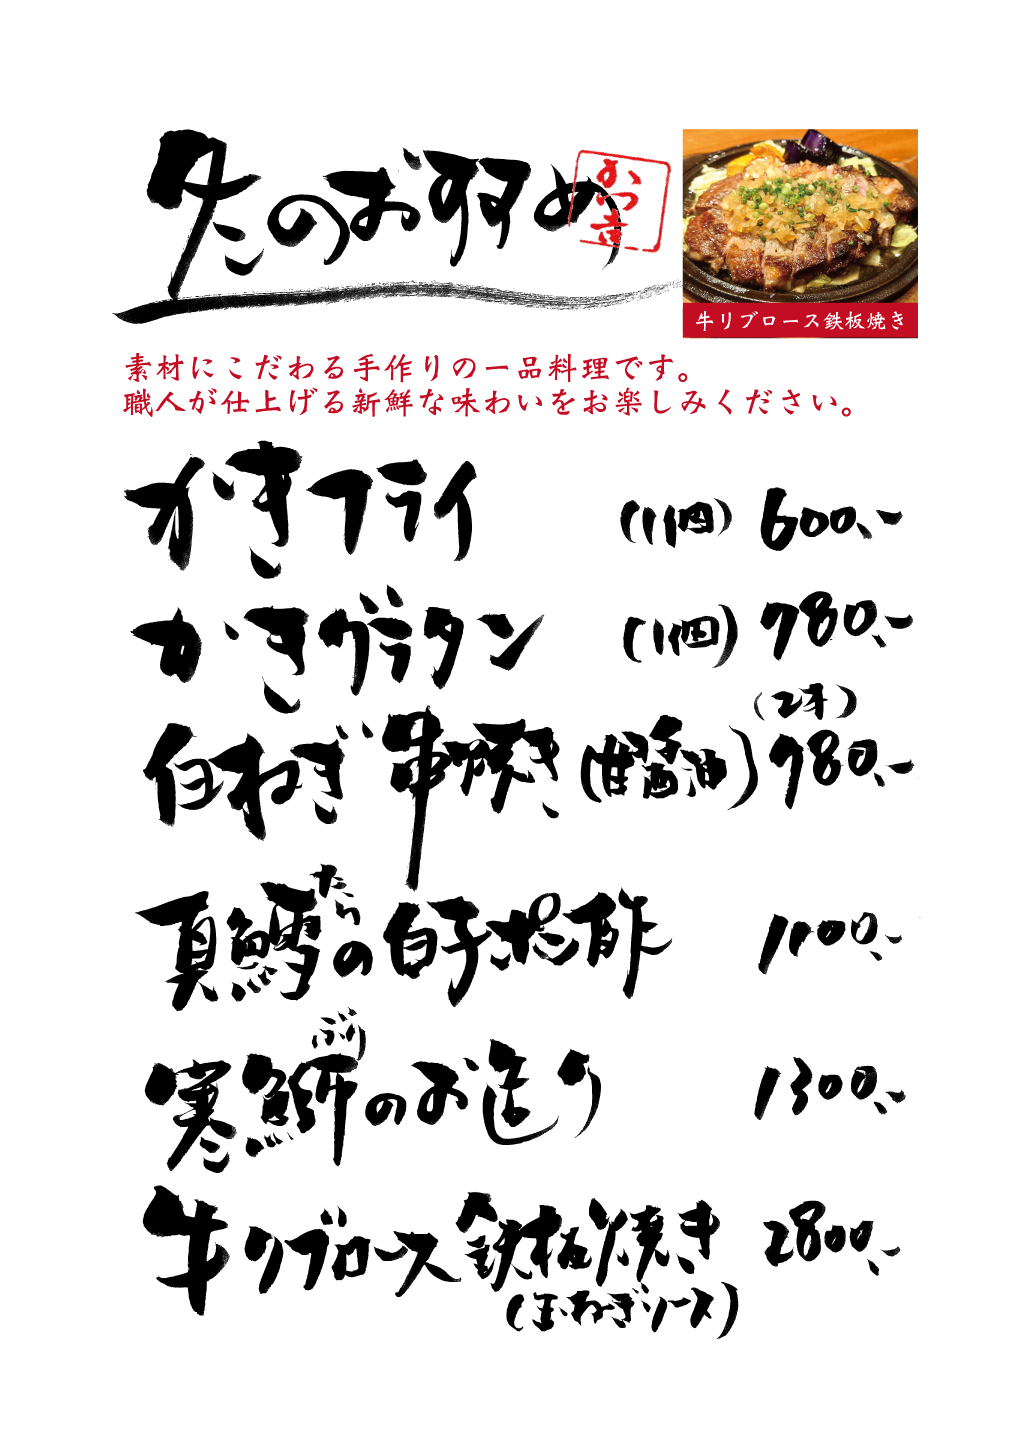 冬のおすすめ
かつ吉
牛リブロース鉄板焼き
素材にこだわる手作りの一品料理です。
職人が仕上げる新鮮な味わいをお楽しみください。
かきフライ (1個) 600、-
かきグラタン (1個) 980、-
白ねぎ串焼き (甘醤油) (2本) 980、-
真鱈の白子ポン酢 1100、-
たら
寒鰤のお造り 1300、-
ぶり
牛リブロース鉄板焼き 2800、-
(玉ねぎソース)